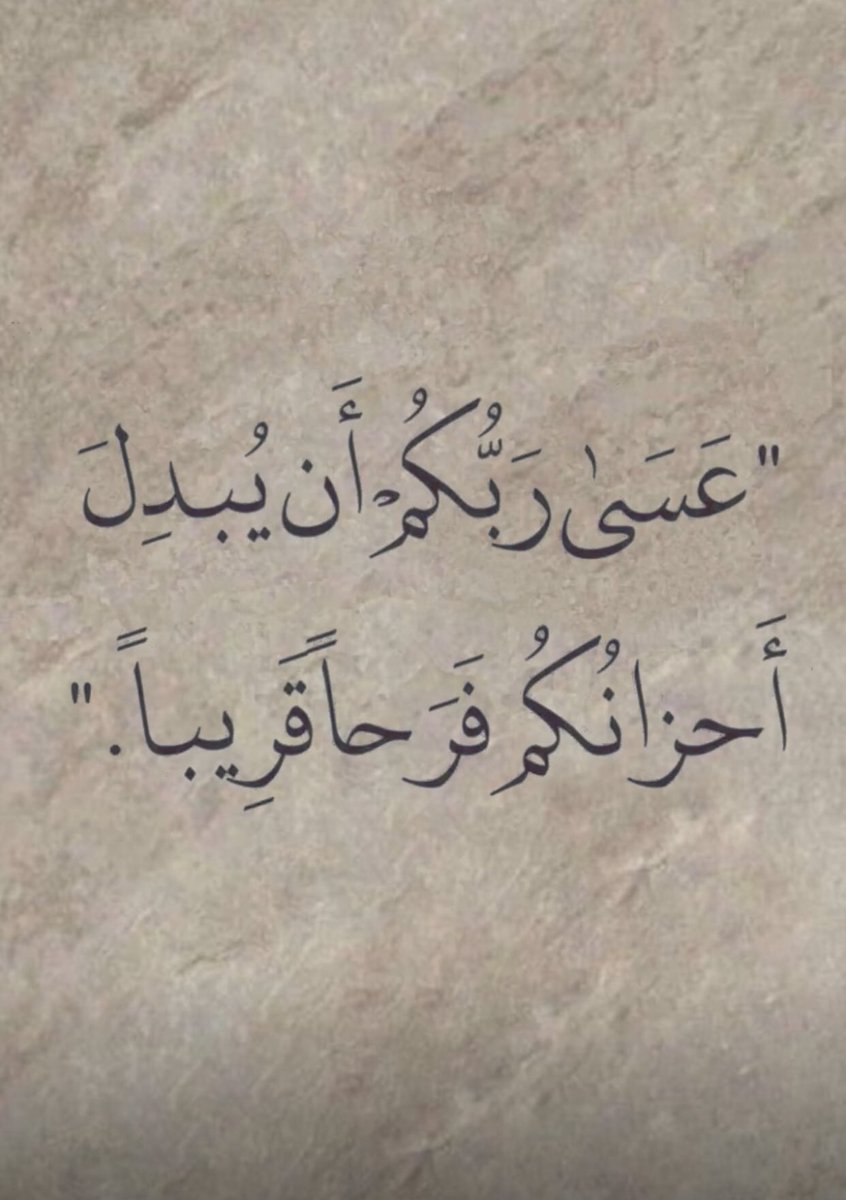 "عَسَىٰ رَبُّكُمْ أَن يُبدِلَ
أَحزانُكُم فَرَحاً قَرِيباً ."